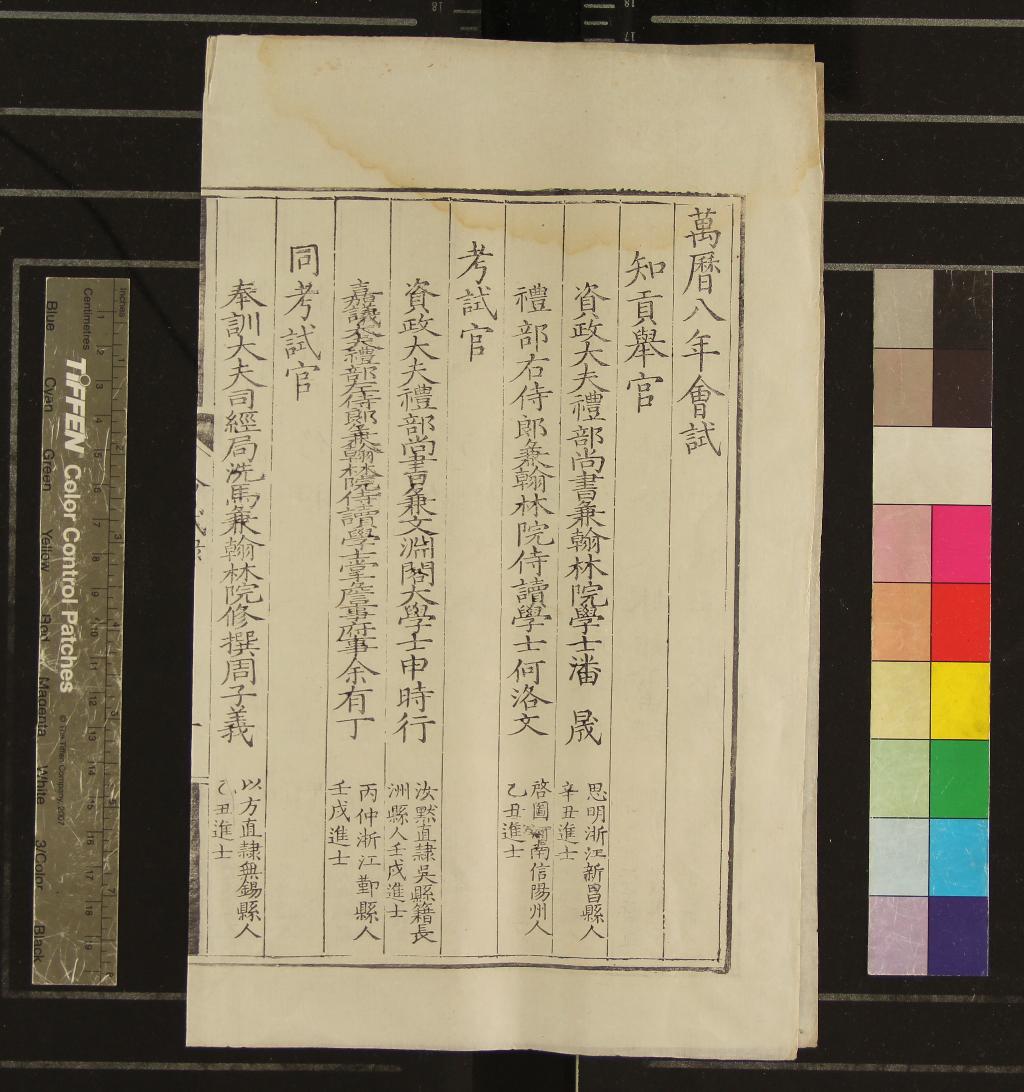 萬曆八年會試
知貢舉官
資政大夫禮部尚書兼翰林院學士潘　晟
思明浙江新昌縣人
辛丑進士
禮部右侍郎兼翰林院侍讀學士何洛文
啓圖河南信陽州人
乙丑進士
考試官
資政大夫禮部尚書兼文淵閣大學士申時行
汝黙直隷吳縣籍長
洲縣人壬戌進士
嘉議大夫禮部左侍郎兼翰林院侍讀學士掌詹事府事余有丁
丙仲浙江鄞縣人
壬戌進士
同考試官
奉訓大夫司經局洗馬兼翰林院修撰周子義
以方直隷無錫縣人
乙丑進士
Inches
Centimetres
TIFFEN Color Control Patches
© The Tiffen Company, 2007
Blue
Cyan
Green
Yellow
Red
Magenta
White
3/Color
Black